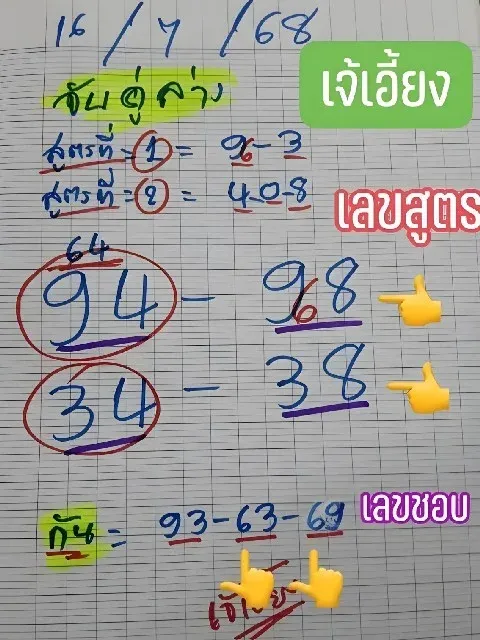 16 / 7 / 68
เจ้เอี้ยง
จับคู่ล่าง
สูตรที่ = 1 = 9 6 - 3
สูตรที่ = 2 = 4-0-8
เลขสูตร
64
94 - 98 6
34 - 38
กัน = 93-63-69
เลขชอบ